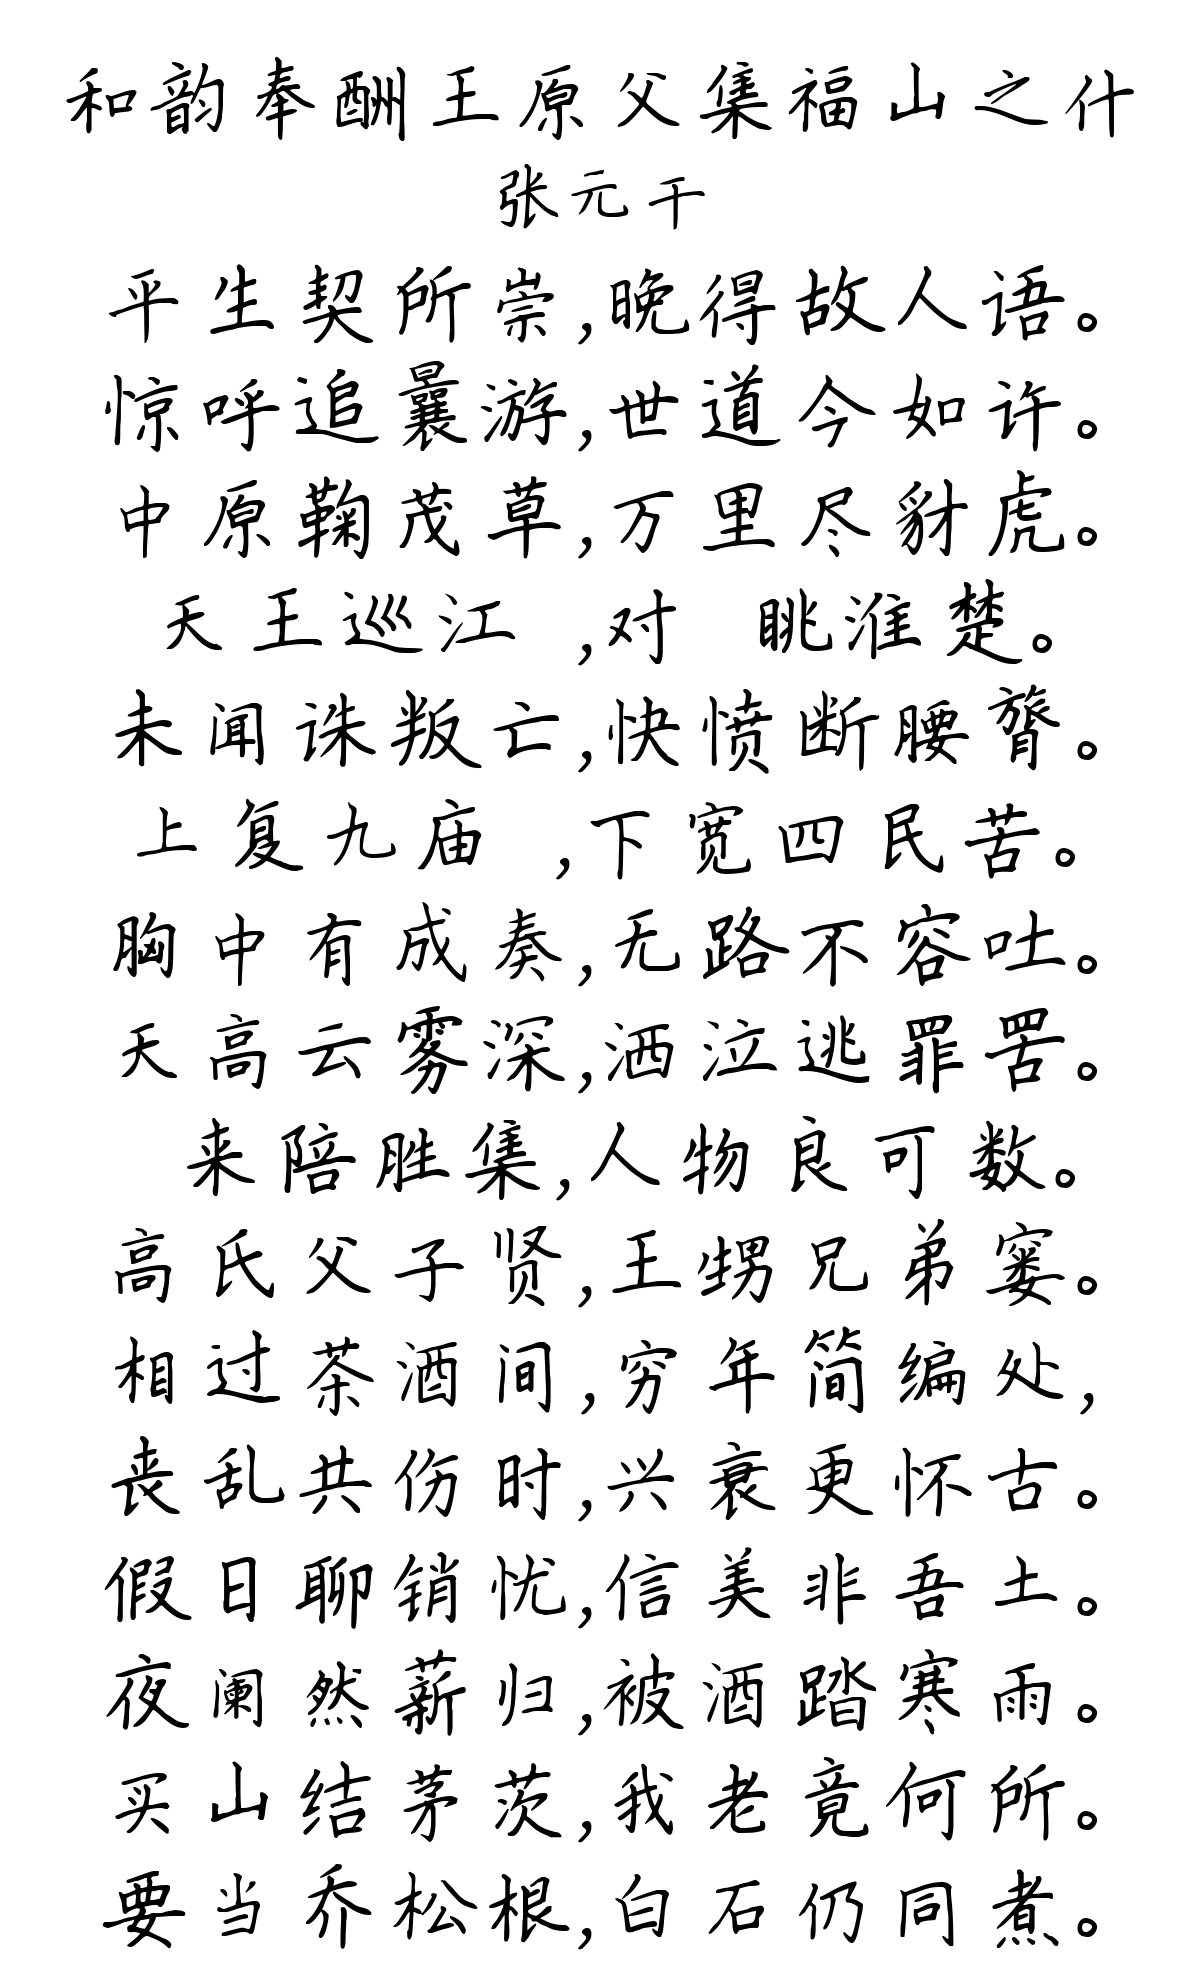 和韵奉酬王原父集福山之什
张元干
平生契所崇,晚得故人语。
惊呼追曩游,世道今如许。
中原鞠茂草,万里尽豺虎。
天王巡江 ,对 眺淮楚。
未闻诛叛亡,快愤断腰膂。
上复九庙 ,下宽四民苦。
胸中有成奏,无路不容吐。
天高云雾深,洒泣逃罪罟。
来陪胜集,人物良可数。
高氏父子贤,王甥兄弟窭。
相过茶酒间,穷年简编处,
丧乱共伤时,兴衰更怀古。
假日聊销忧,信美非吾土。
夜阑然薪归,被酒踏寒雨。
买山结茅茨,我老竟何所。
要当乔松根,白石仍同煮。